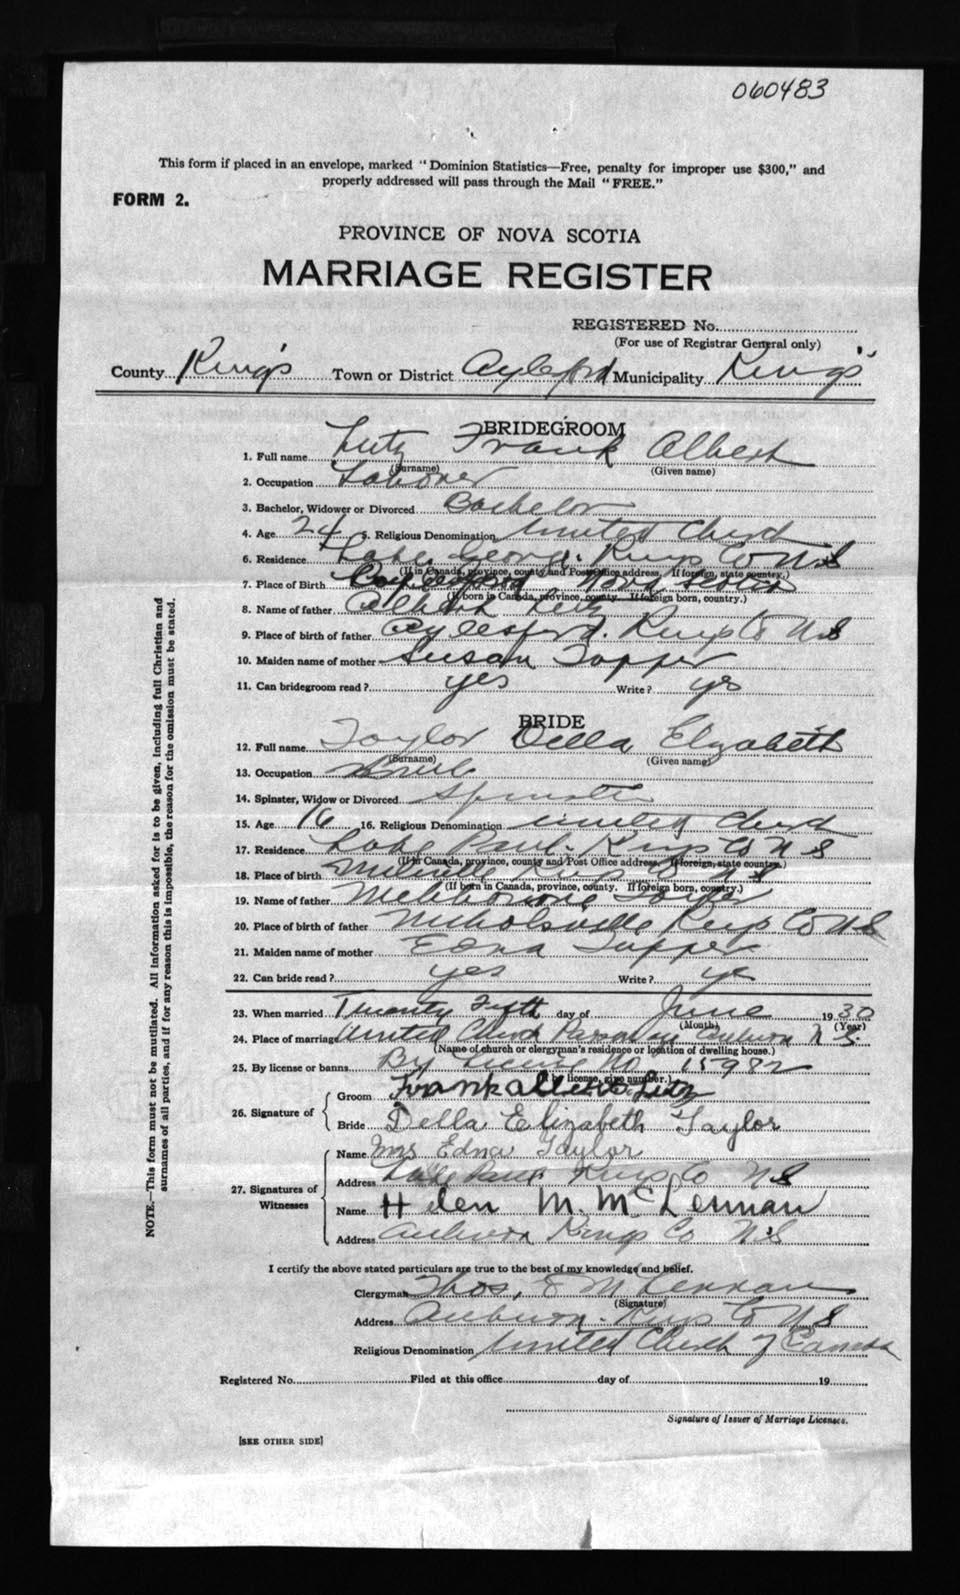 060483
This form if placed in an envelope, marked "Dominion Statistics—Free, penalty for improper use $300," and
properly addressed will pass through the Mail "FREE."
FORM 2.
PROVINCE OF NOVA SCOTIA
MARRIAGE REGISTER
REGISTERED No.
(For use of Registrar General only)
County King's Town or District Aylesford Municipality King's
BRIDEGROOM
1. Full name Lutz Frank Albert
(Surname) (Given name)
2. Occupation Laborer
3. Bachelor, Widower or Divorced Bachelor
4. Age 24 5. Religious Denomination United Church
6. Residence Lake George Kings Co N.S
(If in Canada, province, county and Post Office address. If foreign, state country.)
7. Place of Birth Aylesford Nova Scotia
(If born in Canada, province, county. If foreign born, country.)
8. Name of father Albert Lutz
9. Place of birth of father Aylesford. Kings Co N S
10. Maiden name of mother Susan Tupper
11. Can bridegroom read? yes Write? yes
BRIDE
12. Full name Taylor Della Elizabeth
(Surname) (Given name)
13. Occupation
14. Spinster, Widow or Divorced Spinster
15. Age 16 16. Religious Denomination United Church
17. Residence Lake Paul Kings Co N S
(If in Canada, province, county and Post Office address. If foreign, state country.)
18. Place of birth Millville Kings Co N S
(If born in Canada, province, county. If foreign born, country.)
19. Name of father Taylor
20. Place of birth of father Nicholsville Kings Co N S
21. Maiden name of mother Edna Tupper
22. Can bride read? yes Write? yes
23. When married Twenty Fifth day of June 1930
(Month) (Year)
24. Place of marriage United Church Parsonage Auburn N S.
(Name of church or clergyman's residence or location of dwelling house.)
25. By license or banns By License No 15982
(If by license, give number.)
26. Signature of Groom Frank Albert Lutz
Bride Della Elizabeth Taylor
27. Signatures of Witnesses Name Mrs Edna Taylor
Address Lake Paul Kings Co N S
Name Helen M. McLennan
Address Auburn Kings Co N S
I certify the above stated particulars are true to the best of my knowledge and belief.
Clergyman Thos, E McLennan
(Signature)
Address Auburn. Kings Co N S
Religious Denomination United Church of Canada
Registered No. Filed at this office day of 19
Signature of Issuer of Marriage Licenses.
[SEE OTHER SIDE]
NOTE.—This form must not be mutilated. All information asked for is to be given, including full Christian and
surnames of all parties, and if for any reason this is impossible, the reason for the omission must be stated.